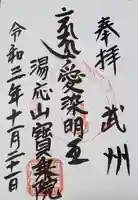 奉拝 武州
愛染明王
山寶院
令和三年十一月二十一日